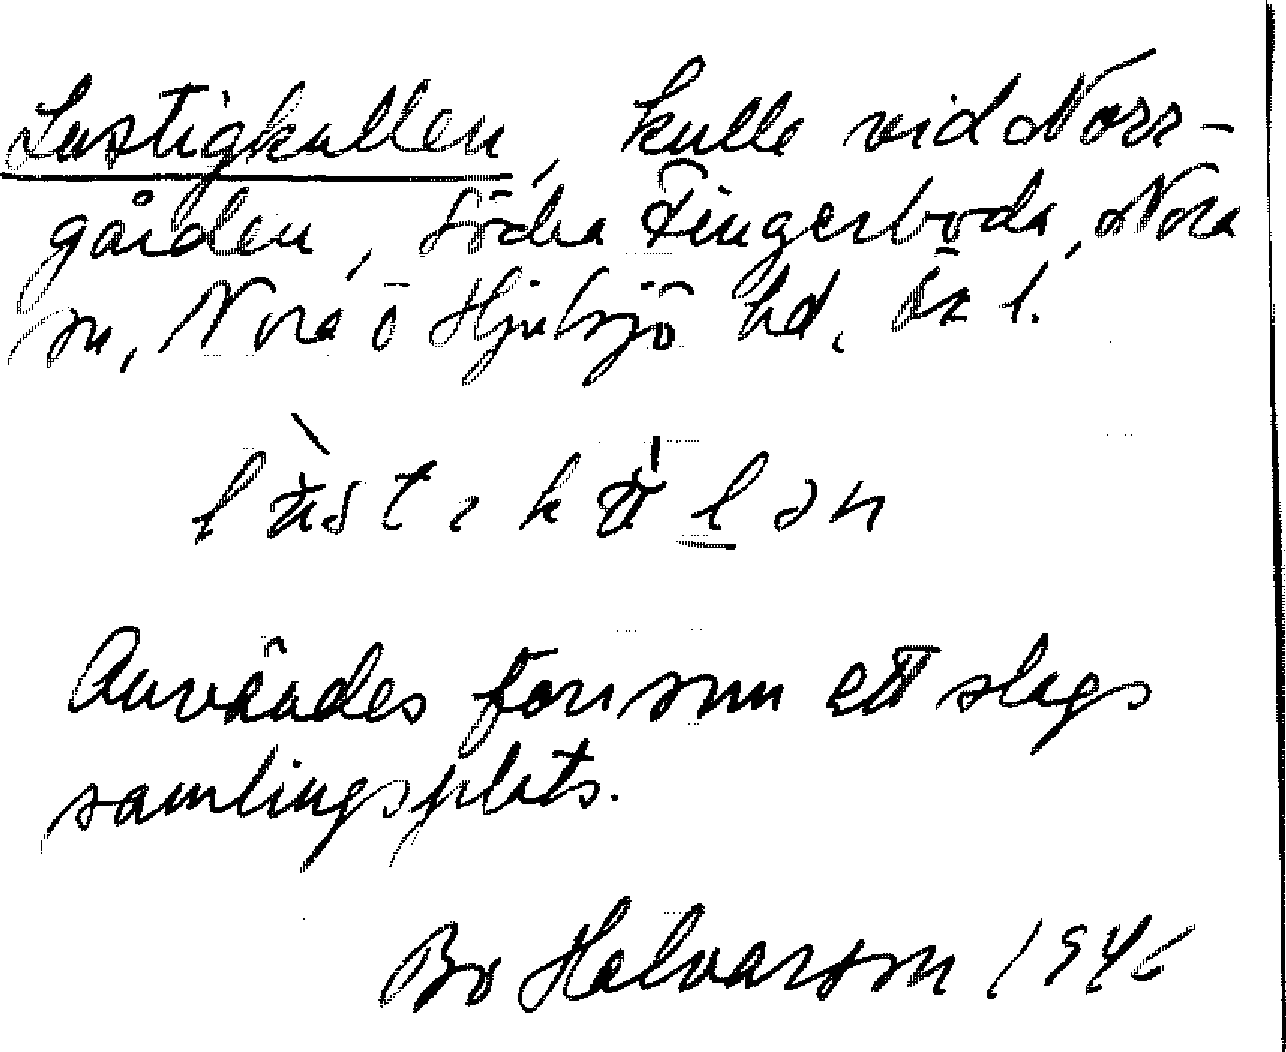 Lustigkullen, kulle vid Norr-
gården, Södra Fingerboda, Nora
sn, Nora o Hjulsjö hd, Ör l.
Användes förr som ett slags
samlingsplats.
Bo Halvarson 1946